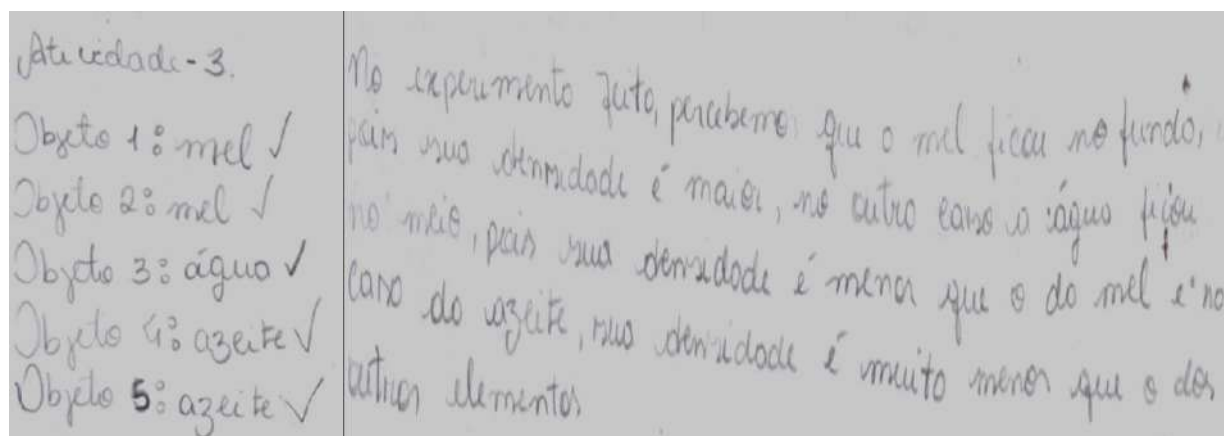 Atividade-3.
Objeto 1: mel ✓
Objeto 2: mel ✓
Objeto 3: água ✓
Objeto 4: azeite ✓
Objeto 5: azeite ✓
No experimento feito, percebemos que o mel ficou no fundo,
pois sua densidade é maior, no outro caso a água ficou
no meio, pois sua densidade é menor que o do mel e no
caso do azeite, sua densidade é muito menor que o dos
outros elementos